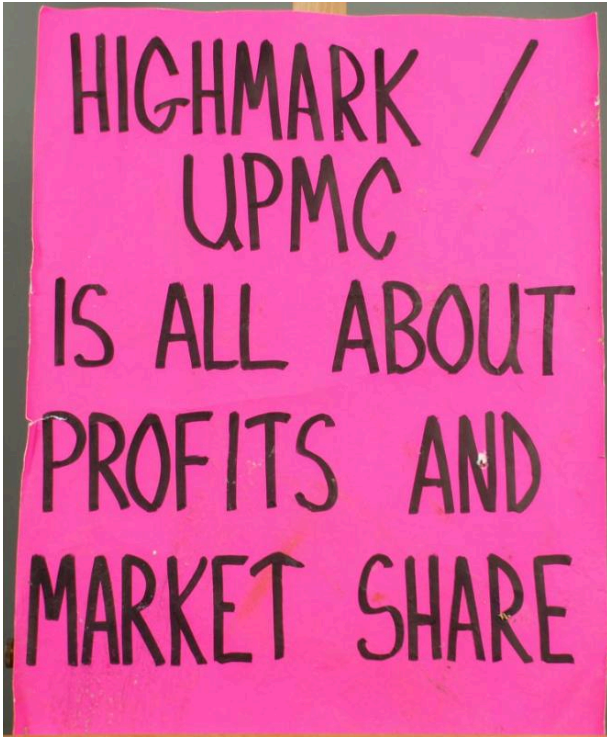 HIGHMARK /
UPMC
IS ALL ABOUT
PROFITS AND
MARKET SHARE